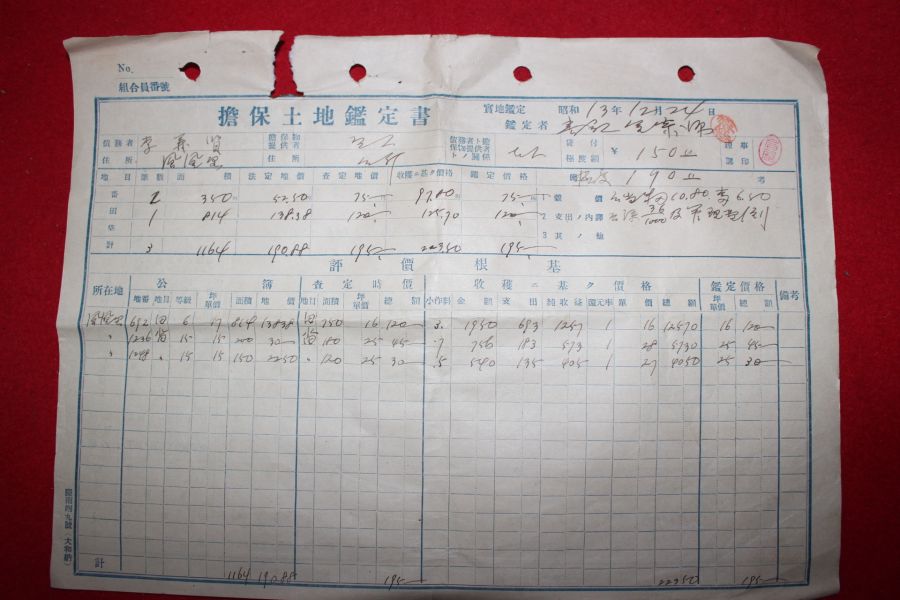 No.
組合員番號
擔保土地鑑定書
實地鑑定 昭和 13年12月24日
鑑定者
債務者 李
住所 鳳凰里
擔保物提供者
住所
債務者ト擔保物提供者トノ關係
貸付極度額 ¥ 150
理事認印
地目 筆數 面積 法定地價 査定地價 收穫ニ基ク價格 鑑定價格 備考
畓 2 350 52.50 75 97.80 75
田 1 814 138.38 120 125.70 120
垈
計 3 1164 190.88 195 223.50 195
190
1 穀價 10.80 6.50
2 支出ノ內譯
3 其ノ他
評價根基
所在地 公簿 査定時價 收穫ニ基ク價格 鑑定價格 備考
地番 地目 等級 坪單價 面積 地價 地目 面積 坪單價 總額 小作料 金額 支出 純收益 還元率 單價 總額 坪單價 總額
鳳凰里 692 田 6 17 814 138.38 田 750 16 120 3. 1950 693 1257 1 16 12570 16 120
〃 1236 畓 15 15 200 30 畓 180 25 45 .7 756 183 573 1 28 5730 25 45
〃 〃 15 15 150 2250 〃 120 25 30 .5 540 135 405 1 27 4050 25 30
計 1164 190.88 195 22350 195
慶南四九號 (大和納)